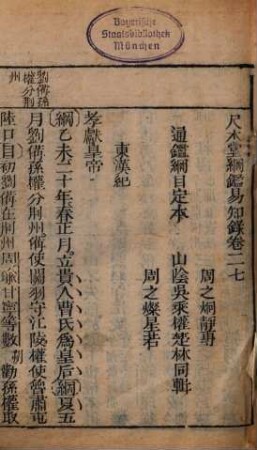 Bayerische
Staatsbibliothek
München
劉備孫
權分荊
州
尺木堂綱鑑易知錄卷二七
通鑑綱目定本
山陰吳乘權楚材同輯
周之炯靜專
周之燦星若
東漢紀
孝獻皇帝
綱乙未二十年春正月立貴人曹氏爲皇后綱夏五
月劉備孫權分荊州備使關羽守江陵權使魯肅屯
陸口目初劉備在荊州周瑜甘寧等數勸孫權取
朔